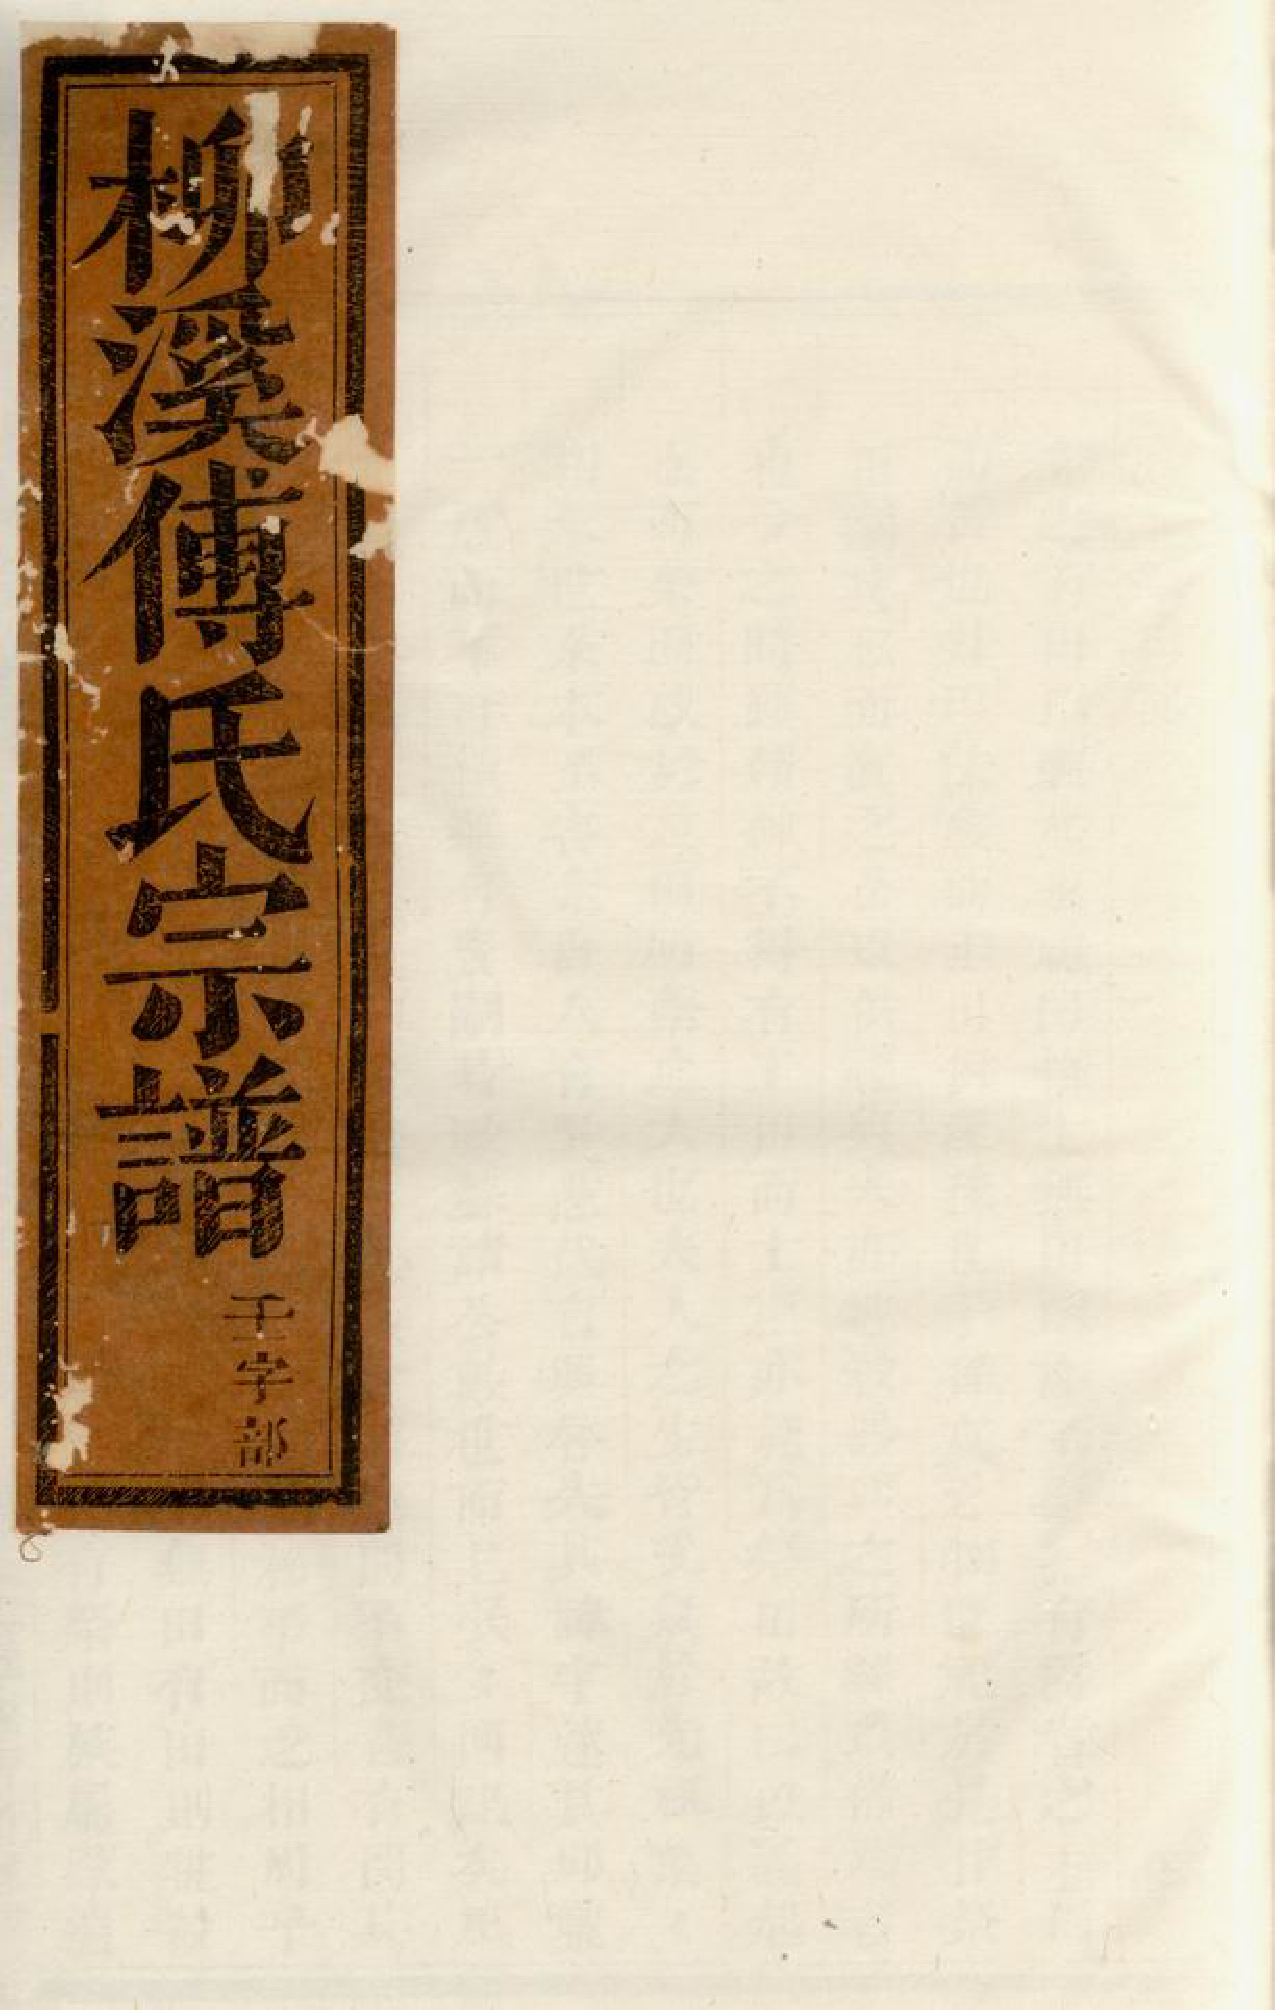 柳溪傅氏宗譜
壬字部